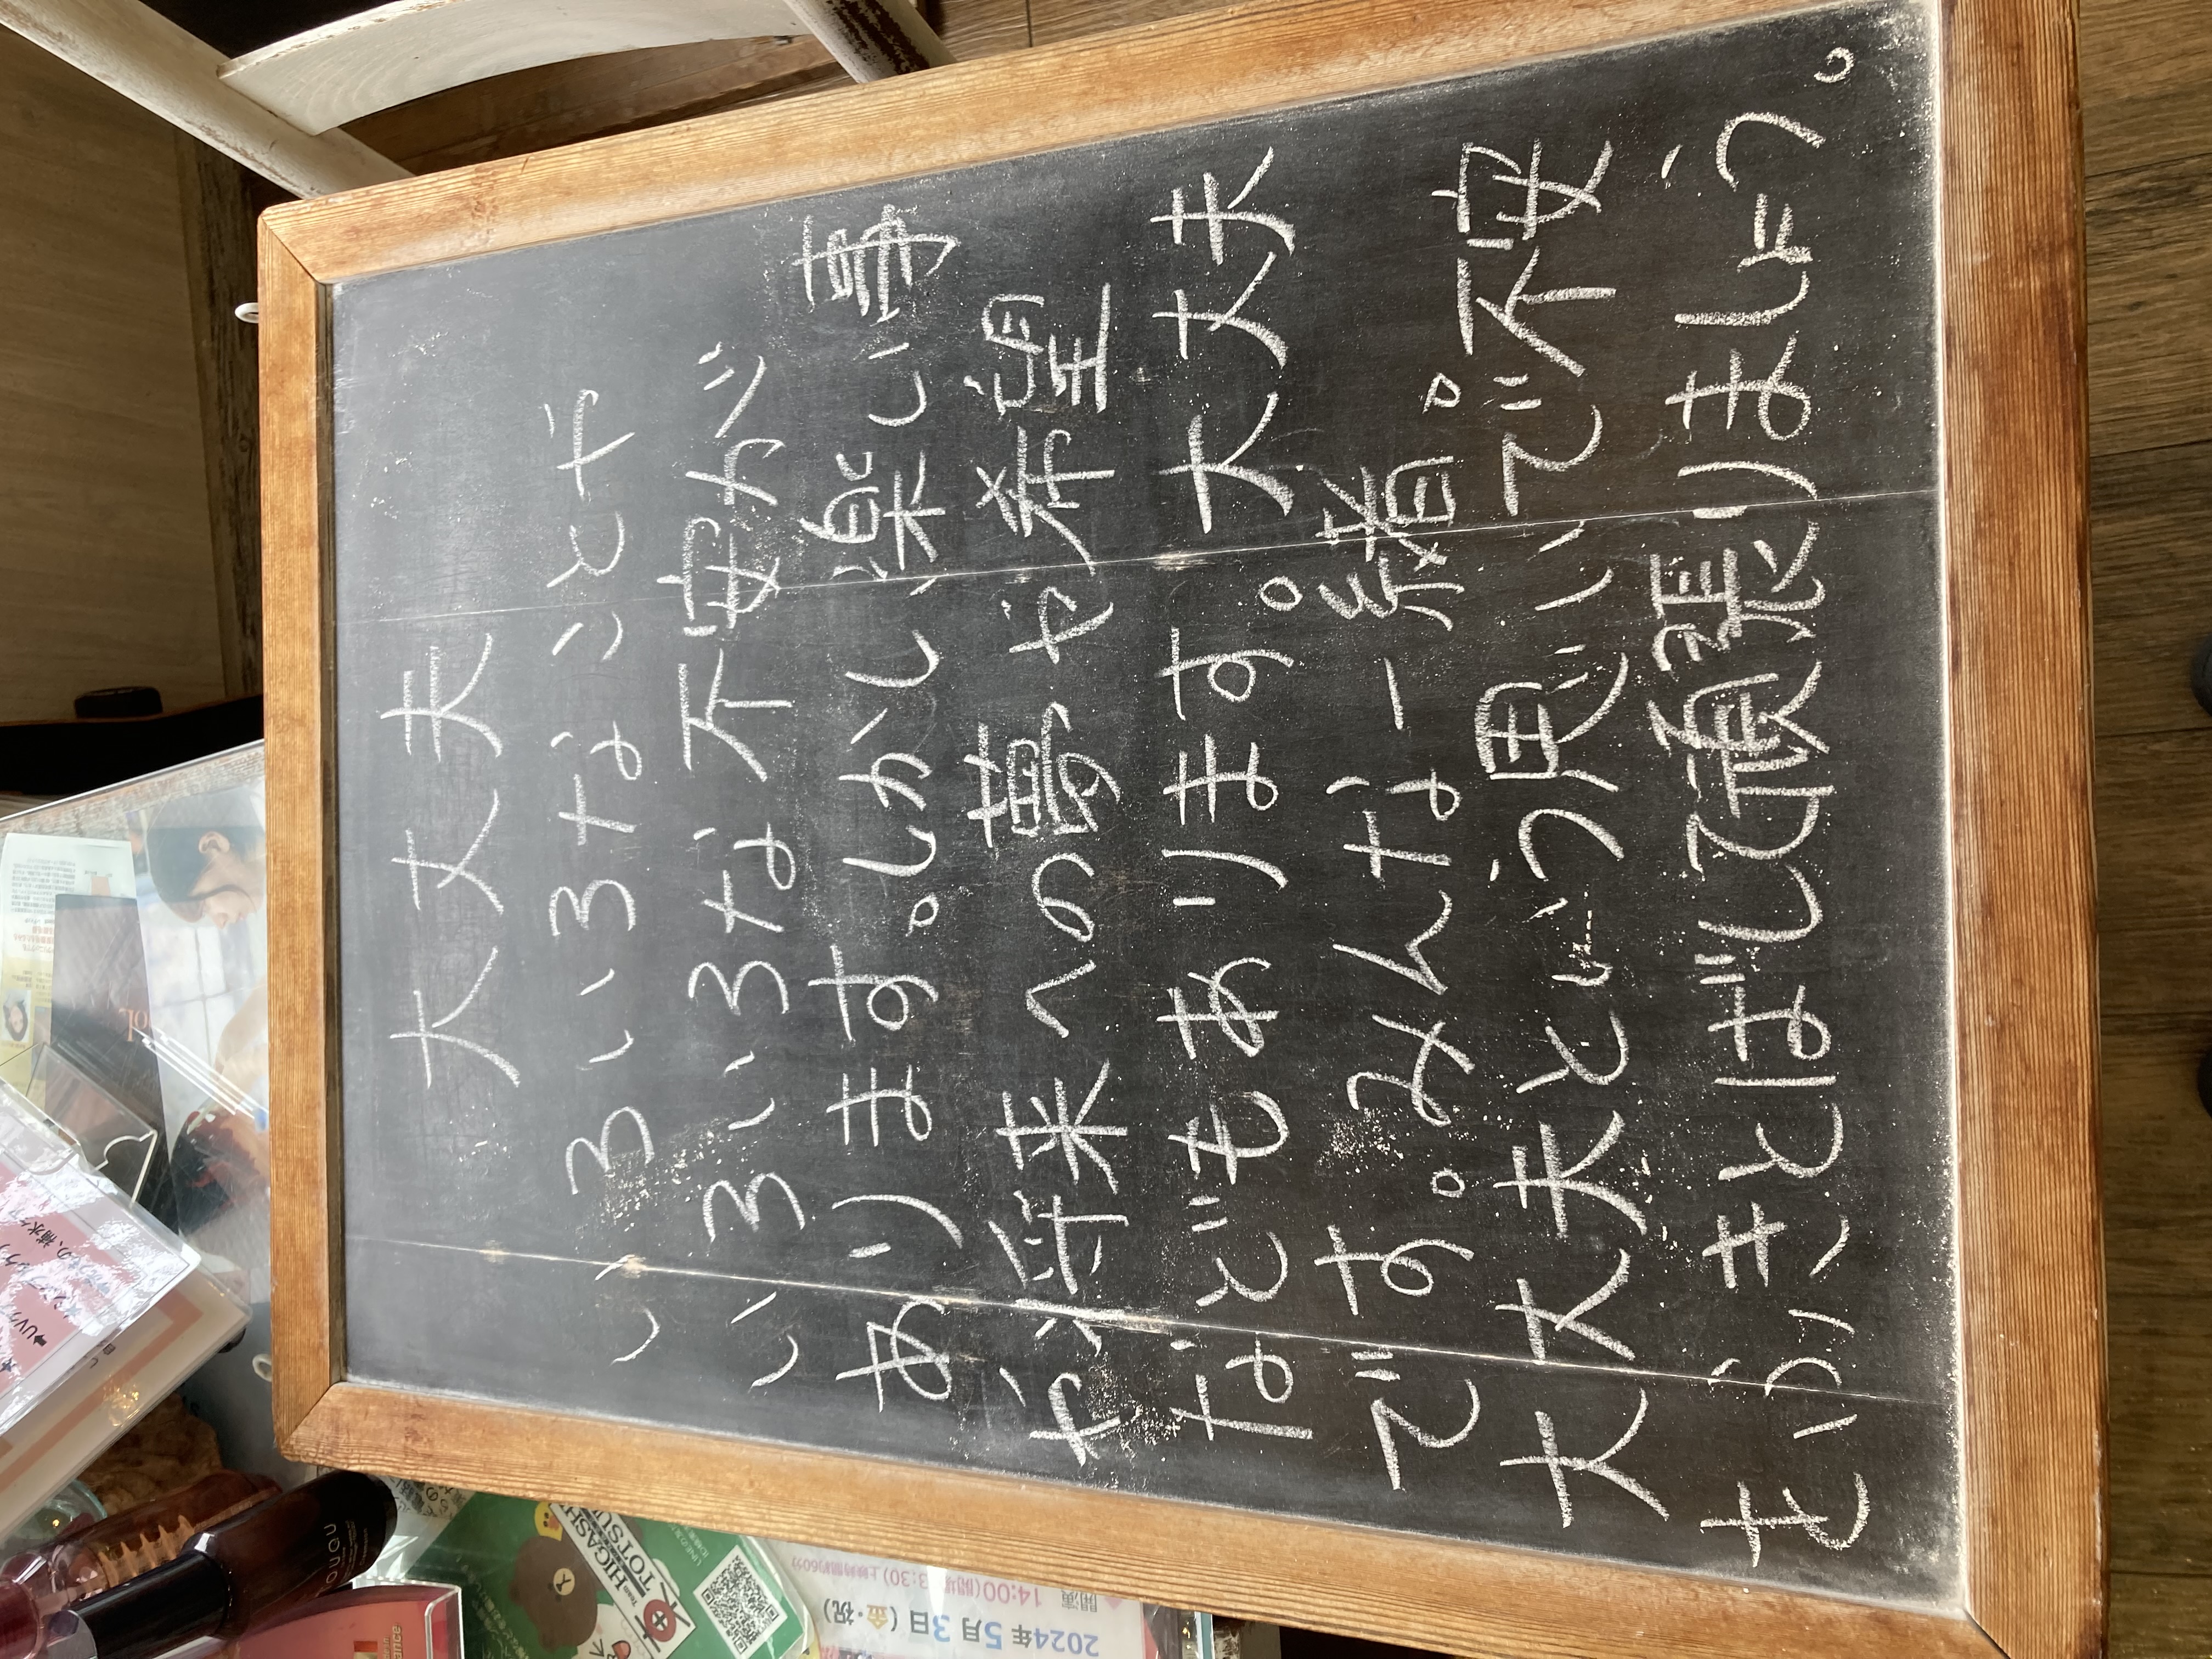 大丈夫
いろいろなことや
いろいろな不安が
あります。しかし、楽しい事
や将来への夢や希望
などもあります。大丈夫
です。みんな一緒。
大丈夫という思いで不安
もふきとばして頑張りましょう。
2024年5月3日(金・祝)
開演 14:00
HIGASHI
TOTSU